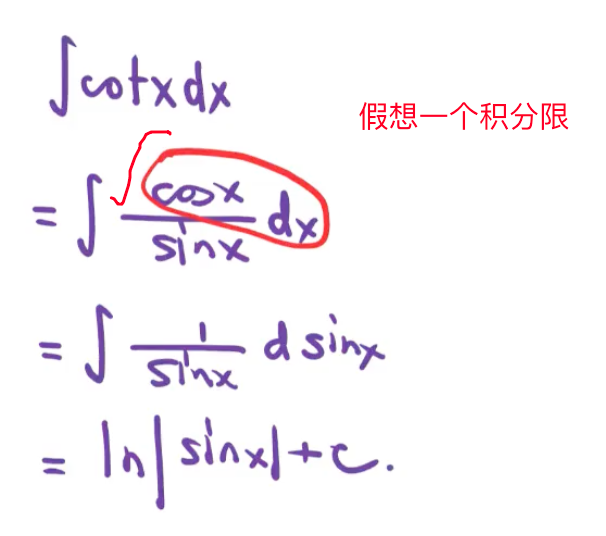 ∫cotxdx
假想一个积分限
= ∫ cosx/sinx dx
= ∫ 1/sinx d sinx
= ln|sinx|+c.